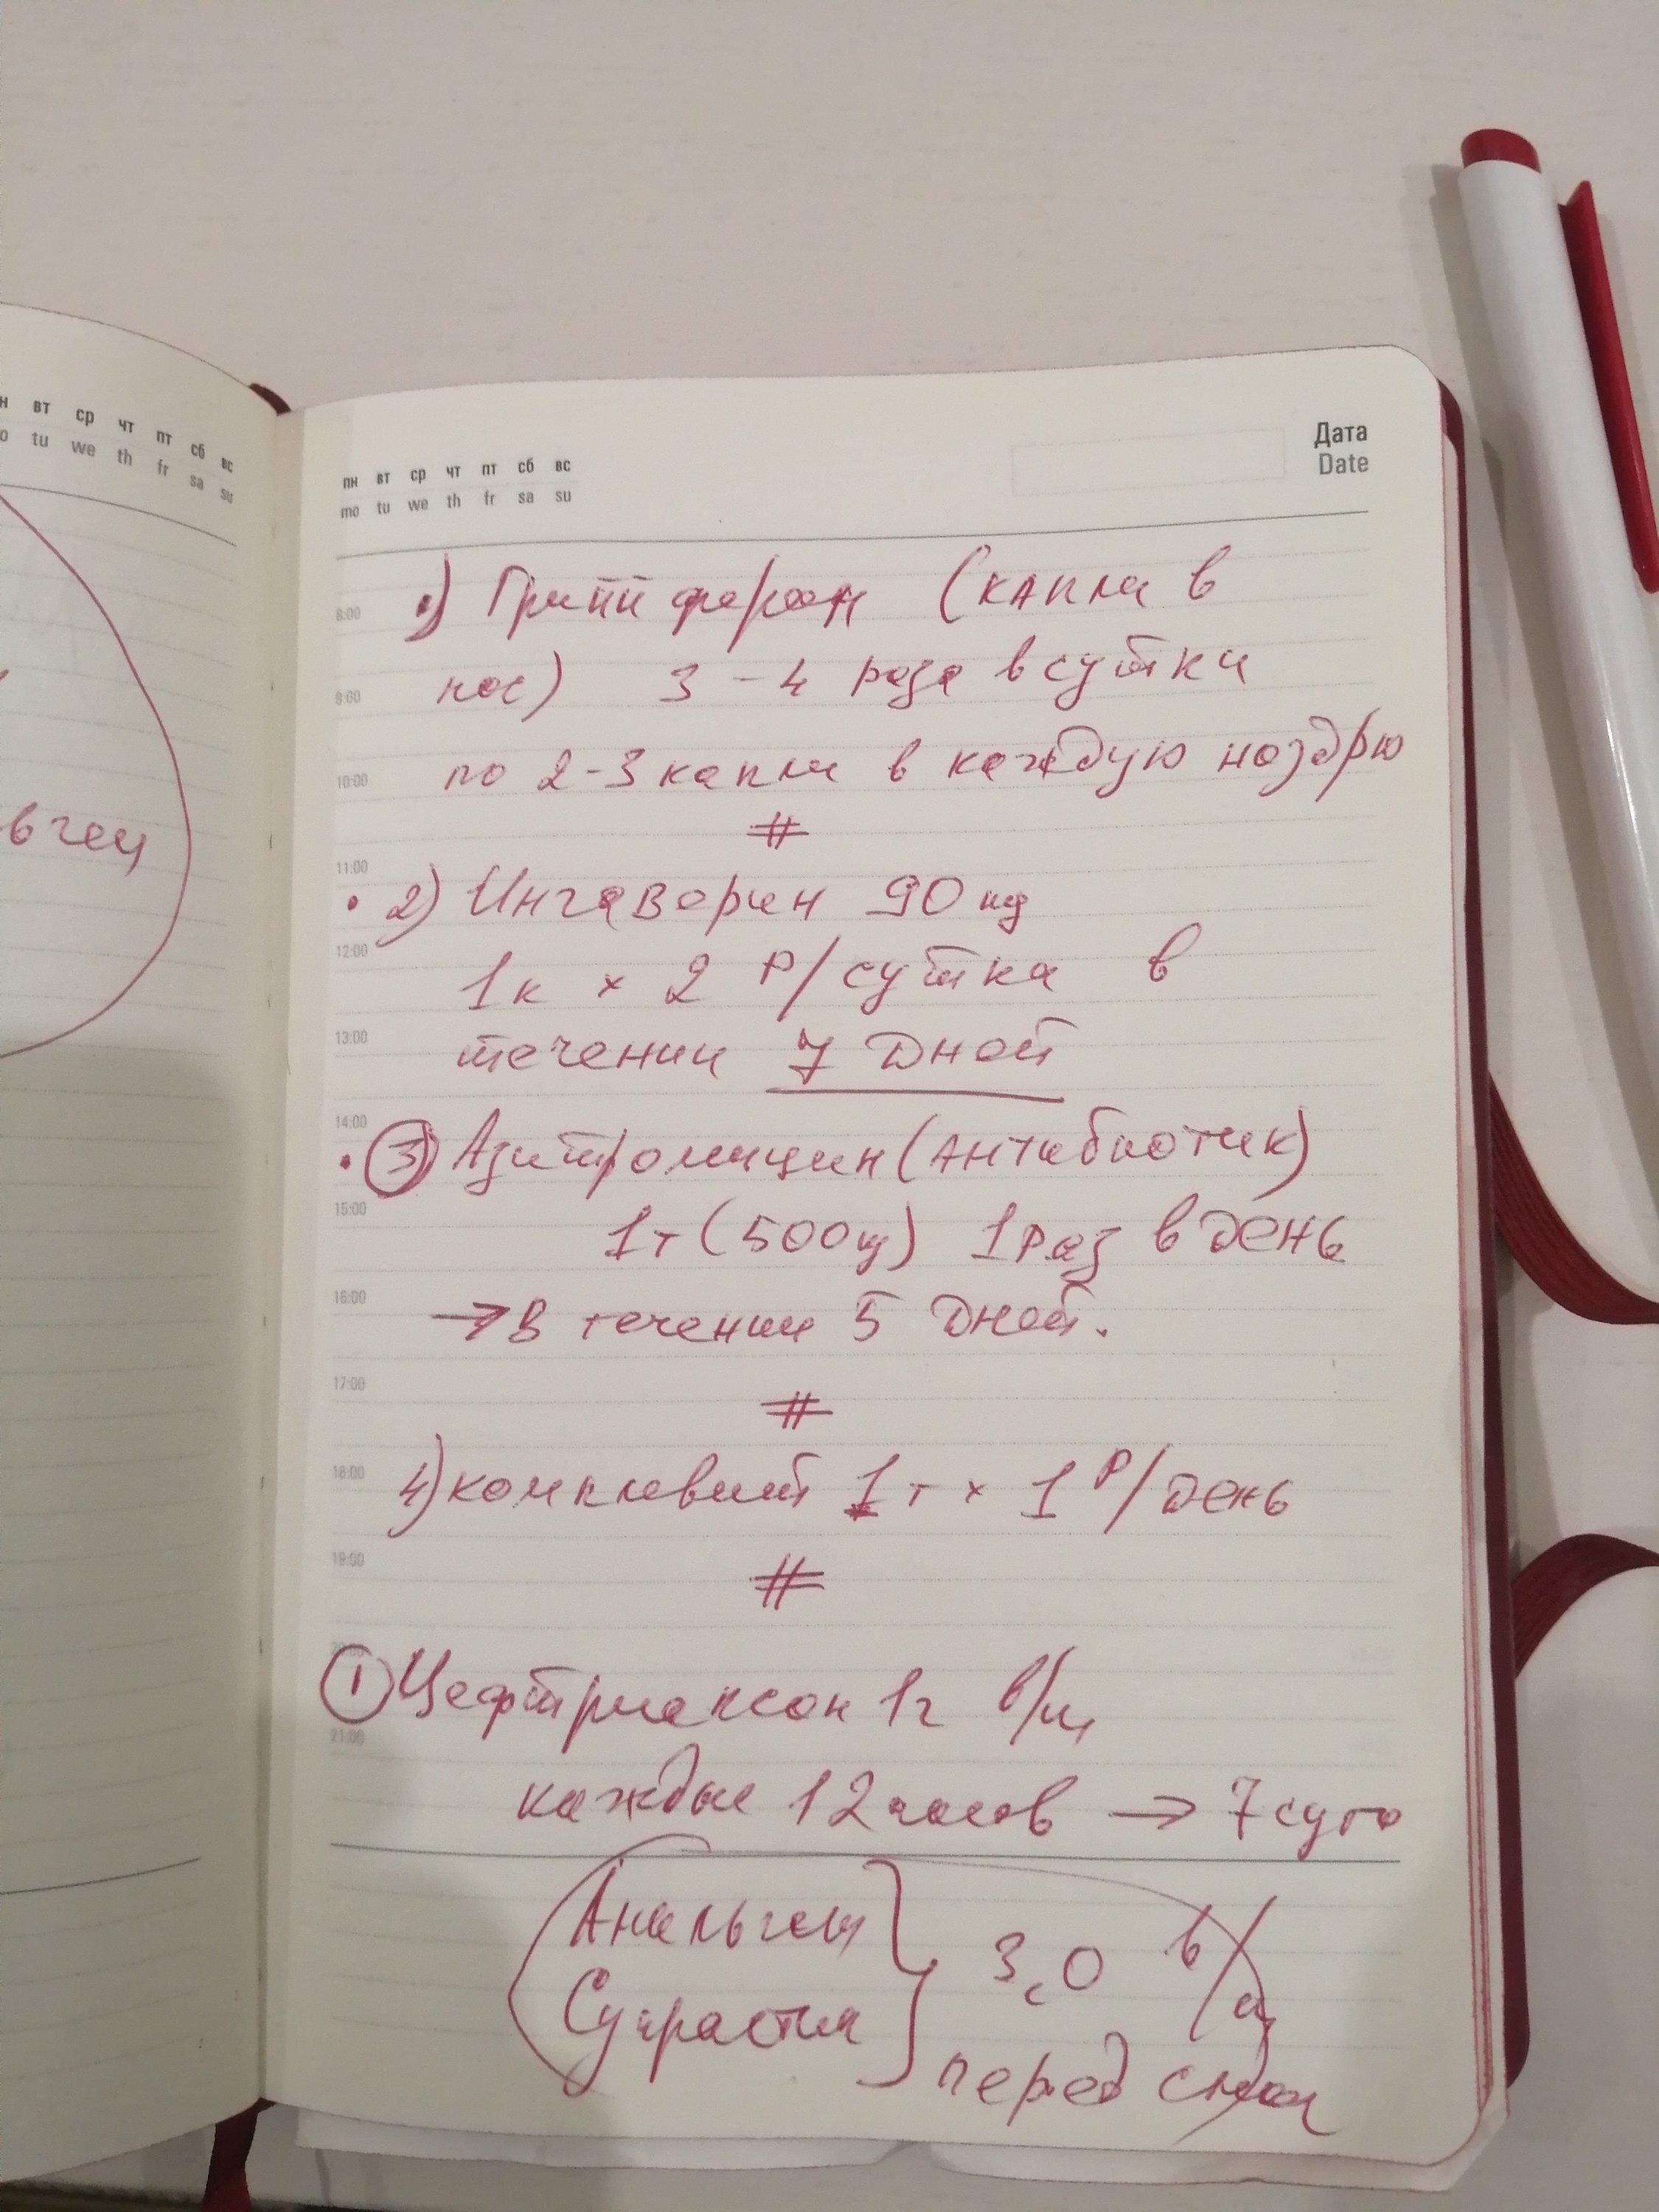 н вт ср чт пт сб вс
o tu we th fr sa su
в чеч
пн вт ср чт пт сб вс
mo tu we th fr sa su
Дата
Date
1) Гриппферон (капли в
8:00
нос) 3-4 раза в сутки
9:00
по 2-3 капли в каждую ноздрю
10:00
#
11:00
• 2) Ингаверин 90 мг
12:00
1к x 2 р/сутка в
13:00
течении 7 дней
14:00
• 3) Азитромицин (антибиотик)
15:00
1т (500 мг) 1 раз в день
16:00
→ В течении 5 дней.
17:00
#
18:00
4) компливит 1т x 1 р/день
19:00
#
20:00
1 Цефтриаксон 1г в/м
21:00
каждые 12 часов → 7 суто
Анальгин
Супрастин } 3,0 в/м
перед сном